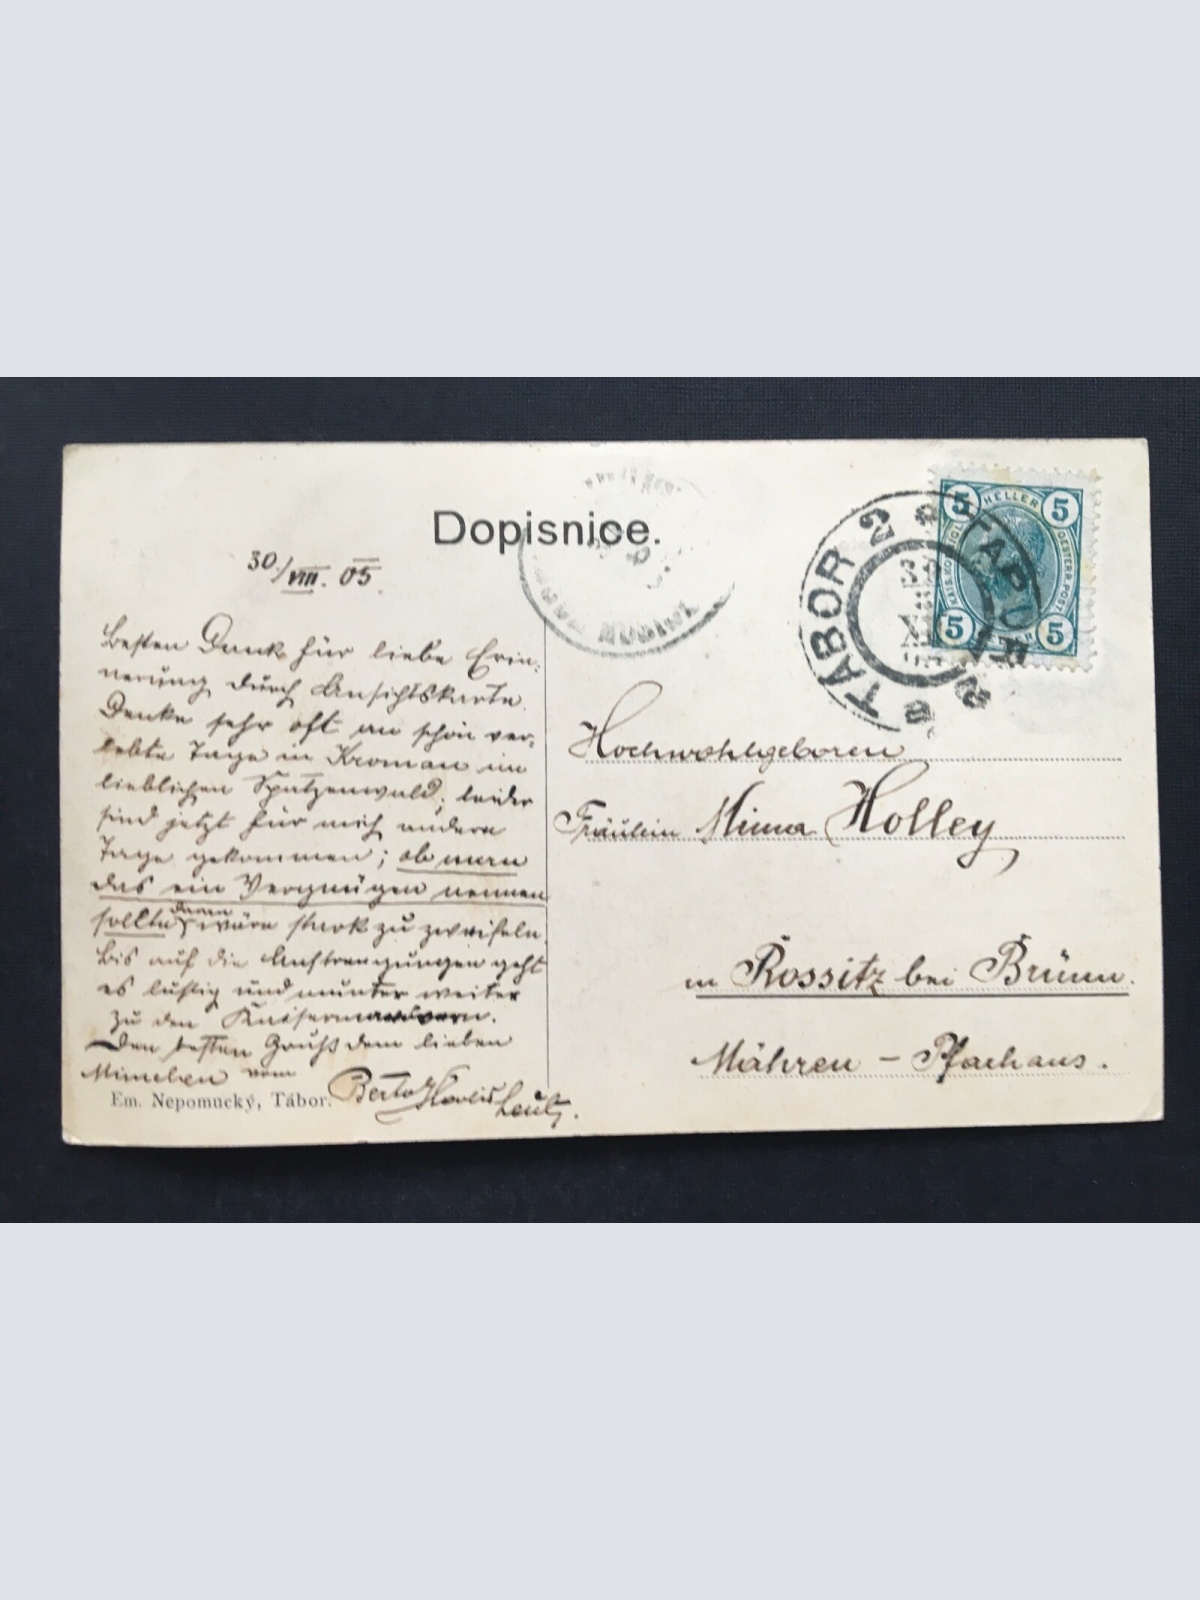 Dopisnice.
30./VIII. 05.
Besten Dank für liebe Erin-
nerung durch Ansichtskarte.
Denke sehr oft an schön ver-
lebte Tage in Kroman im
lieblichen Spatzenwald; leider
sind jetzt für mich andere
Tage gekommen; ob man
das ein Vergnügen nennen
sollte, daran wäre stark zu zweifeln.
Bis auf die Anstrengungen geht
es lustig und munter weiter
zu den Kaisermanövern.
Den besten Gruß dem lieben
Minchen vom
Berto
Em. Nepomucký, Tábor.
TÁBOR 2
TABOR 2
5 HELLER 5
KAIS. KÖN. OESTERR. POST
5 HELLER 5
Hochwohlgeboren
Fräulein Minna Holley
in Rossitz bei Brünn.
Mähren – Pfarhaus.